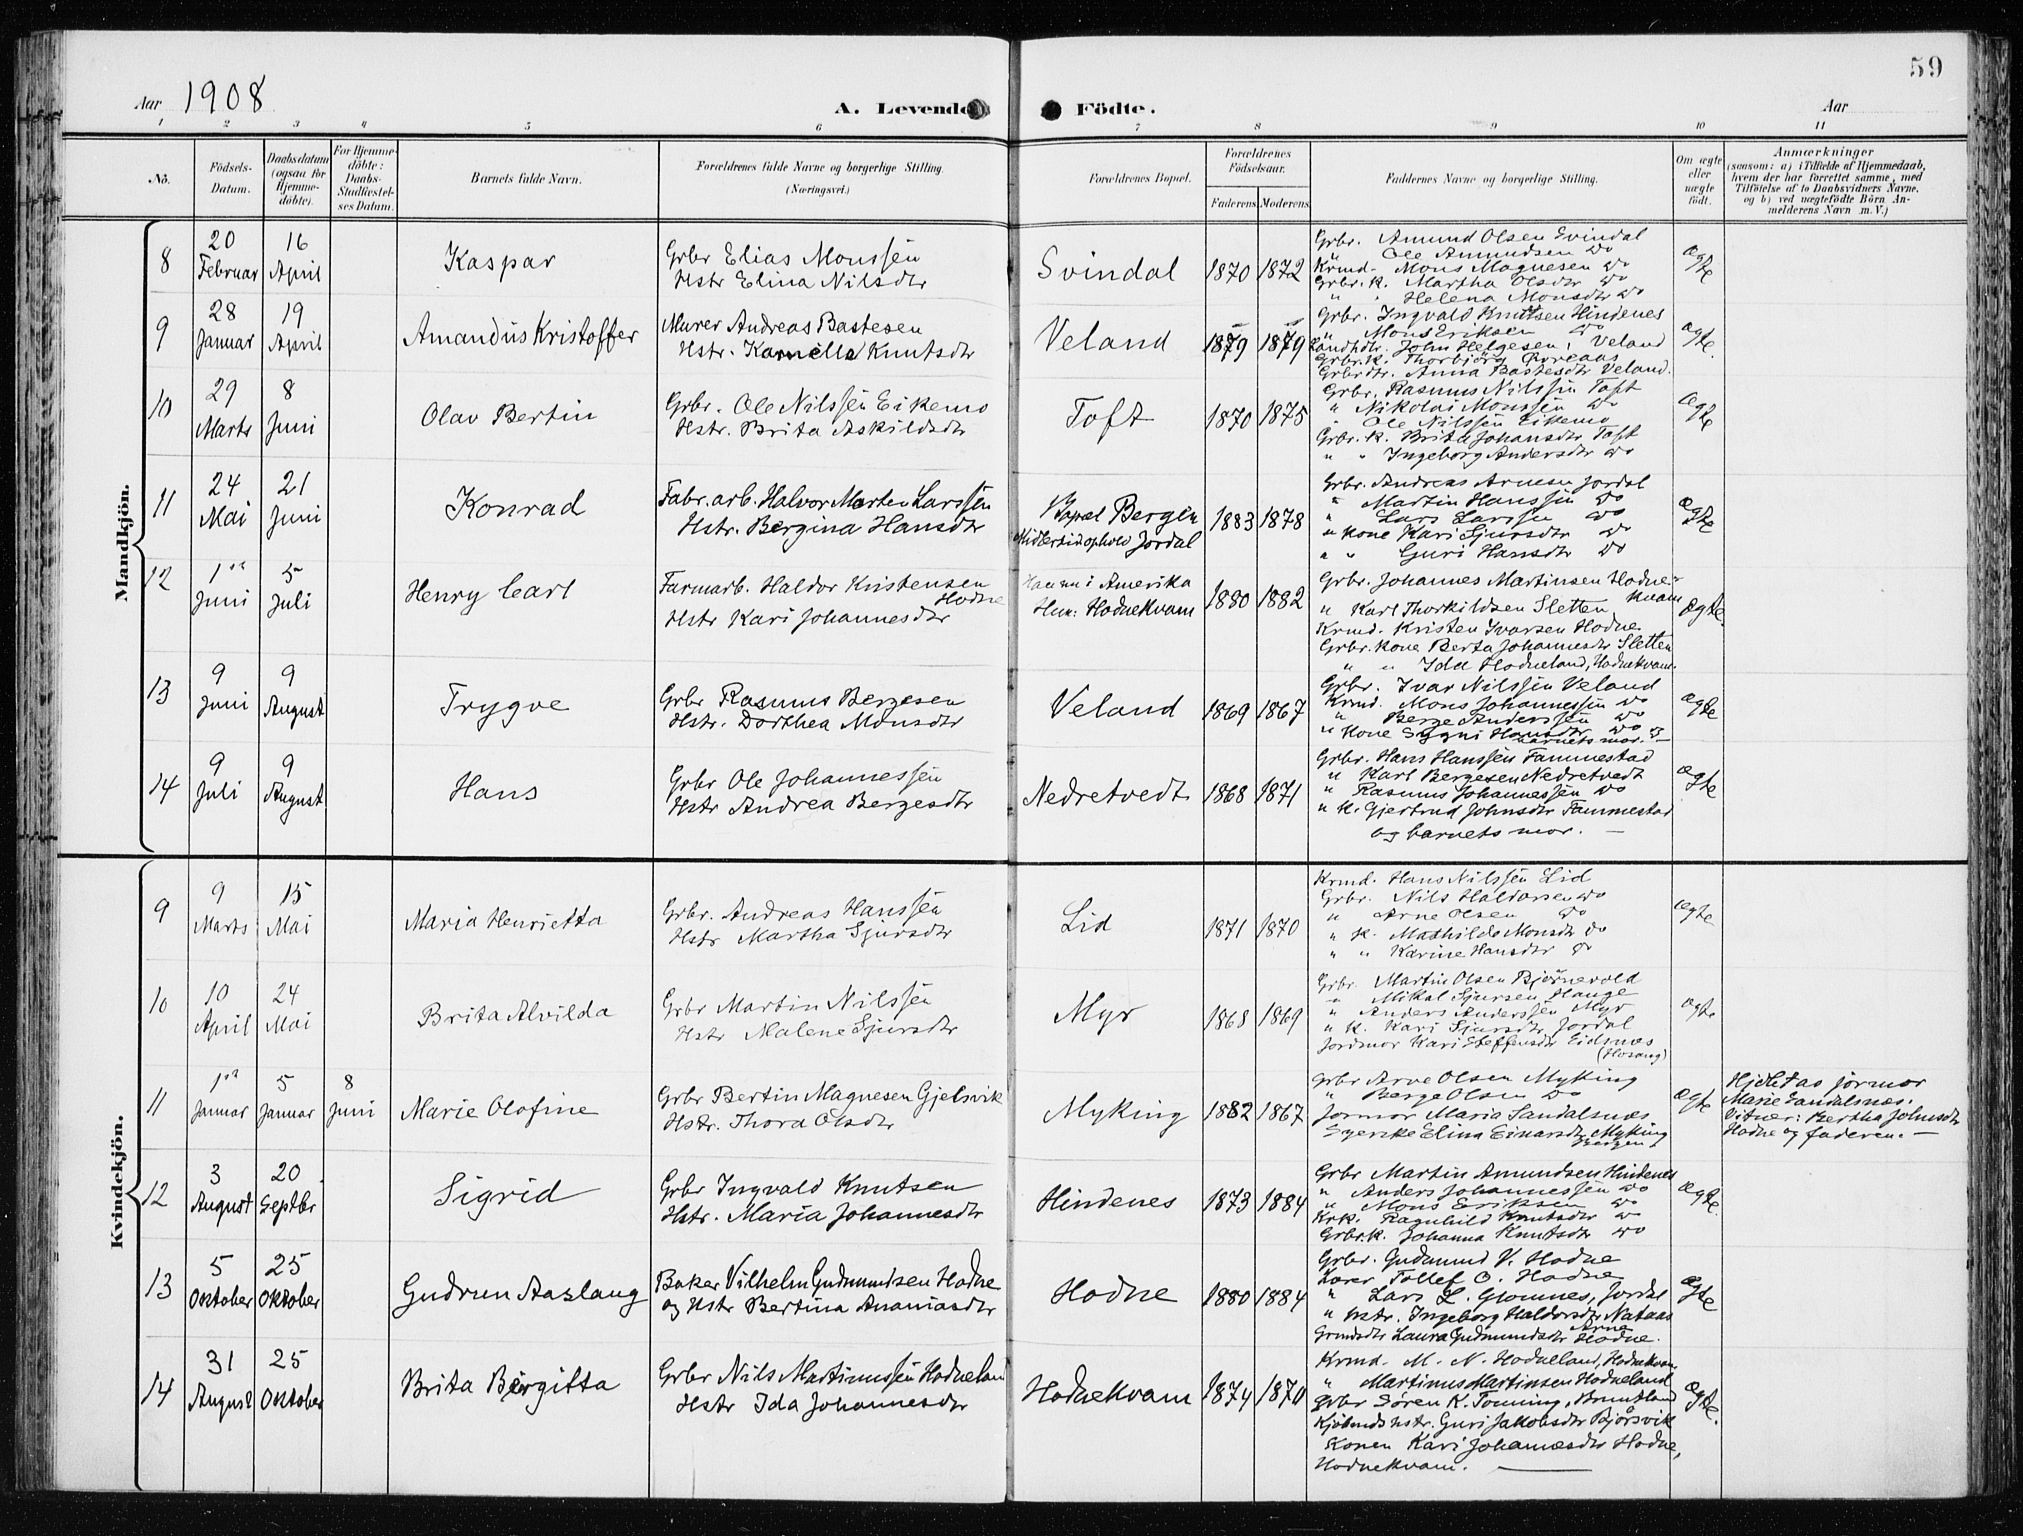 59
Aar 1908
A. Levende Födte.
Aar
1 2 3 4 5 6 7 8 9 10 11
No.
Födsels-Datum.
Daabsdatum (ogsaa for Hjemme-döbte).
For Hjemme-döbte: Daabs-Stadfæstel-ses Datum.
Barnets fulde Navn.
Forældrenes fulde Navne og borgerlige Stilling. (Næringsvei.)
Forældrenes Bopæl.
Forældrenes Födselsaar.
Faderens Moderens
Faddernes Navne og borgerlige Stilling.
Om ægte eller uægte födt.
Anmærkninger
(saasom: a) i Tilfælde af Hjemmedaab,
hvem der har forrettet samme, med
Tilföielse af to Daabsvidners Navne,
og b) ved uægtefödte Börn An-
melderens Navn m. V.)
Mandkjön.
8
20 Februar
16 April
Kaspar
Grbr Elias Monssen
Hstr Elina Nilsdtr
Svindal
1870 1872
Grbr. Amund Olsen Svindal
" Ole Amundsen do
Krmd. Mons Magnesen do
Grbr. k. Martha Olsdtr do
" " Helena Monsdtr do
ægte
9
28 Januar
19 April
Amandus Kristoffer
Murer Andreas Bastesen
Hstr. Kornelia Knutsdtr
Veland
1879 1879
Grbr. Ingvald Knutsen Hindenes
" Mons Eriksen do
Landhdlr. John Helgesen, Veland
Grbr. k. Thorbjörg Øvreaas
Grbrdtr. Anna Bastesdtr Veland.
ægte.
10
29 Marts
8 Juni
Olav Bertin
Grbr. Ole Nilssen Eikemo
Hstr. Brita Askildsdtr
Toft
1870 1875
Grbr. Rasmus Nilssen Toft
" Nikolai Monssen do
" Ole Nilssen Eikemo
Grbr. k. Brita Johansdtr Toft
" " Ingeborg Andersdtr do
ægte
11
24 Mai
21 Juni
Konrad
Fabr. arb. Halvor Morten Larssen
Hstr. Bergina Hansdtr
Bopæl Bergen
Midlertid ophold Jordal
1883 1878
Grbr. Andreas Arnesen Jordal
" Martin Hanssen do
" Lars Larssen do
" kone Kari Sjursdtr do
" " Guri Hansdtr do
ægte
12
1ste Juni
5 Juli
Henry Carl
Farmarb. Haldor Kristensen Hodne
Hstr Kari Johannesdtr
Han nu i Amerika
Hun: Hodnekvam
1880 1882
Grbr. Johannes Martinsen Hodne-
kvam
" Karl Thorkildsen Sletten
Krmd. Kristen Ivarsen Hodne
Grbr. kone Berta Johannesdtr Sletten
" " Ida Hodneland, Hodnekvam.
ægte.
13
9 Juni
9 August
Trygve
Grbr Rasmus Bergesen
Hstr. Dorthea Monsdtr
Veland
1869 1867
Grbr. Ivar Nilssen Veland
Krmd. Mons Johannessen do
" Berge Anderssen do
" kone Sygni Hansdtr do
barnets mor.
ægte
14
9 Juli
9 August
Hans
Grbr Ole Johannessen
Hstr Andrea Bergesdtr
Nedretvedt
1868 1871
Grbr. Hans Hanssen Fammestad
" Karl Bergesen Nedretvedt
" Rasmus Johannessen do
" k. Gjertrud Johnsdtr Fammestad
og barnets mor. —
ægte
Kvindekjön.
9
9 Marts
15 Mai
Maria Henrietta
Grbr. Andreas Hanssen
Hstr Martha Sjursdtr
Lid
1871 1870
Krmd. Hans Nilssen Lid
Grbr. Nils Haldorsen do
" Arne Olsen do
" k. Mathilde Monsdtr do
" " Karine Hansdtr do
ægte
10
10 April
24 Mai
Brita Alvilda
Grbr Martin Nilssen
Hstr Malene Sjursdtr
Myr
1868 1869
Grbr. Martin Olsen Bjørnevold
" Mikal Sjursen Hauge
" Anders Anderssen Myr
" k. Kari Sjursdtr Jordal
Jordmor Kari Steffensdtr Eidsnes
(Hosang)
ægte
11
1ste Januar
5 Januar
8 Juni
Marie Olofine
Grbr Bertin Magnesen Gjelsvik
Hstr. Thora Olsdtr
Myking
1882 1867
Grbr Arne Olsen Myking
" Berge Olsen do
Jormor Maria Sandalsnes
Syerske Elina Einarsdtr Myking
Bergen
ægte
Hjdbt as jormor
Marie Sandalsnes.
Vitner: Bertha Johnsdtr
Hodne og faderen. —
12
3 August
20 Septbr
Sigrid
Grbr Ingvald Knutsen
Hstr. Maria Johannesdtr
Hindenes
1873 1884
Grbr Martin Amundsen Hindenes
" Anders Johannessen do
" Mons Eriksen do
Krk. Ragnhild Knutsdtr do
Grbr. k. Johanna Knutsdtr do
ægte.
13
5 Oktober
25 Oktober
Gudrun Aaslaug
Baker Vilhelm Gudmundsen Hodne
og Hstr Bertina Ananiasdtr
Hodne
1880 1884
Grbr. Gudmund V. Hodne
Lærer Tollef O. Hodne
" Lars L. Glomnes, Jordal
" Hstr. Ingeborg Haldorsdtr Nataas
Arne
Grmdsdtr Laura Gudmundsdtr Hodne.
ægte
14
31 August
25 Oktober
Brita Birgitta
Grbr Nils Martinussen Hodneland
Hstr Ida Johannesdtr
Hodnekvam
1874 1870
Krmd. M. N. Hodneland, Hodnekvam
" Martinus Martinsen Hodneland
Grbr Søren K. Tonning, Bruntland
Kjøbmds hstr. Guri Jakobsdtr Bjørsvik
Konen Kari Johannesdtr Hodne,
Hodnekvam. —
ægte.